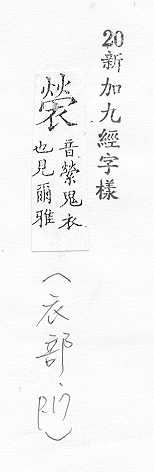 20新加九經字樣
褮
音縈鬼衣
也見爾雅
(衣部, P17)